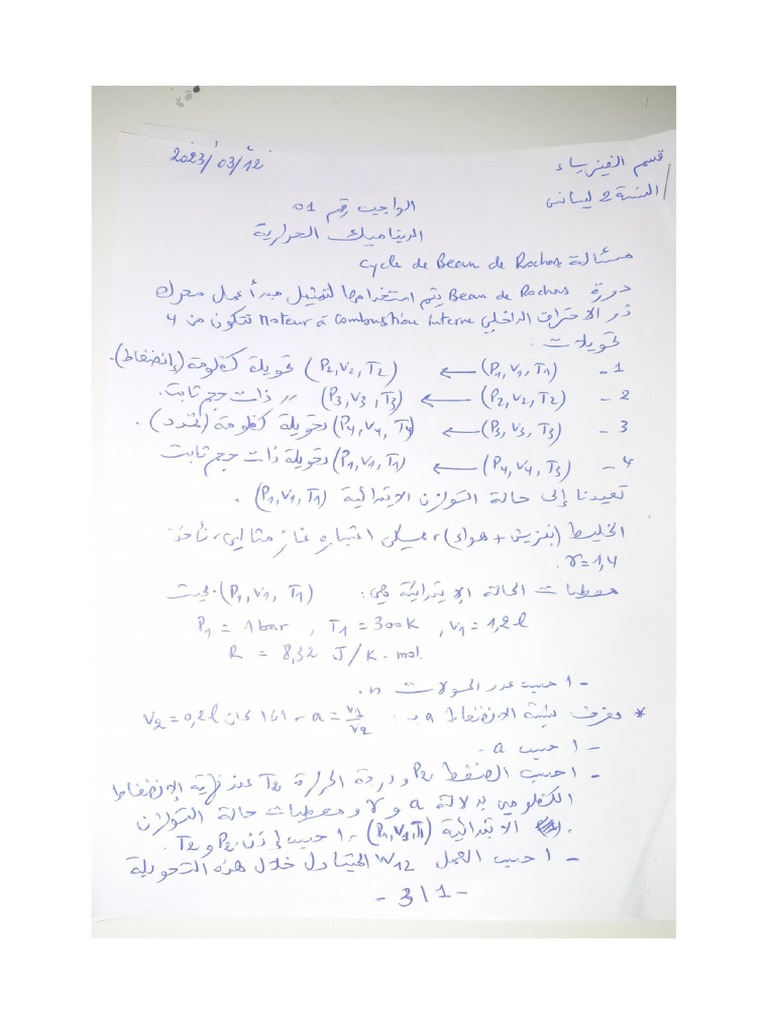 قسم الفيزياء
2023/03/12
السنة 2 ليسانس
الواجب رقم 01
الديناميك الحرارية
مسألة Cycle de Beau de Rochas
دورة Beau de Rochas يتم استخدامها لتمثيل مبدأ عمل محرك
ذو الاحتراق الداخلي Moteur à Combustion Interne تتكون من 4
تحويلات.
1 - (P1, V1, T1) ← (P2, V2, T2) تحويلة كظومة (إنضغاط).
2 - (P2, V2, T2) ← (P3, V3, T3) // ذات حجم ثابت.
3 - (P3, V3, T3) ← (P4, V4, T4) تحويلة كظومة (تمدد).
4 - (P4, V4, T3) ← (P1, V1, T1) تحويلة ذات حجم ثابت
تعيدنا إلى حالة التوازن الابتدائية (P1, V1, T1).
الخليط (بنزين + هواء)، يمكن اعتباره غاز مثالي، نأخذ
γ = 1,4.
معطيات الحالة الابتدائية هي: (P1, V1, T1). بحيث
P1 = 1 bar , T1 = 300 K , V1 = 1,2 l
R = 8,32 J/K. mol.
- احسب عدد المولات n.
* نعرف نسبة الانضغاط a بـ: a = V1/V2 - اذا كان V2 = 0,2 l
- احسب a.
- احسب الضغط P2 ودرجة الحرارة T2 عند نهاية الإنضغاط
الكظومي بدلالة a و γ ومعطيات حالة التوازن
الابتدائية (P1, V1, T1) - احسب إذن P2 و T2.
- احسب العمل W12 المتبادل خلال هذه التحويلة
- 3/1 -